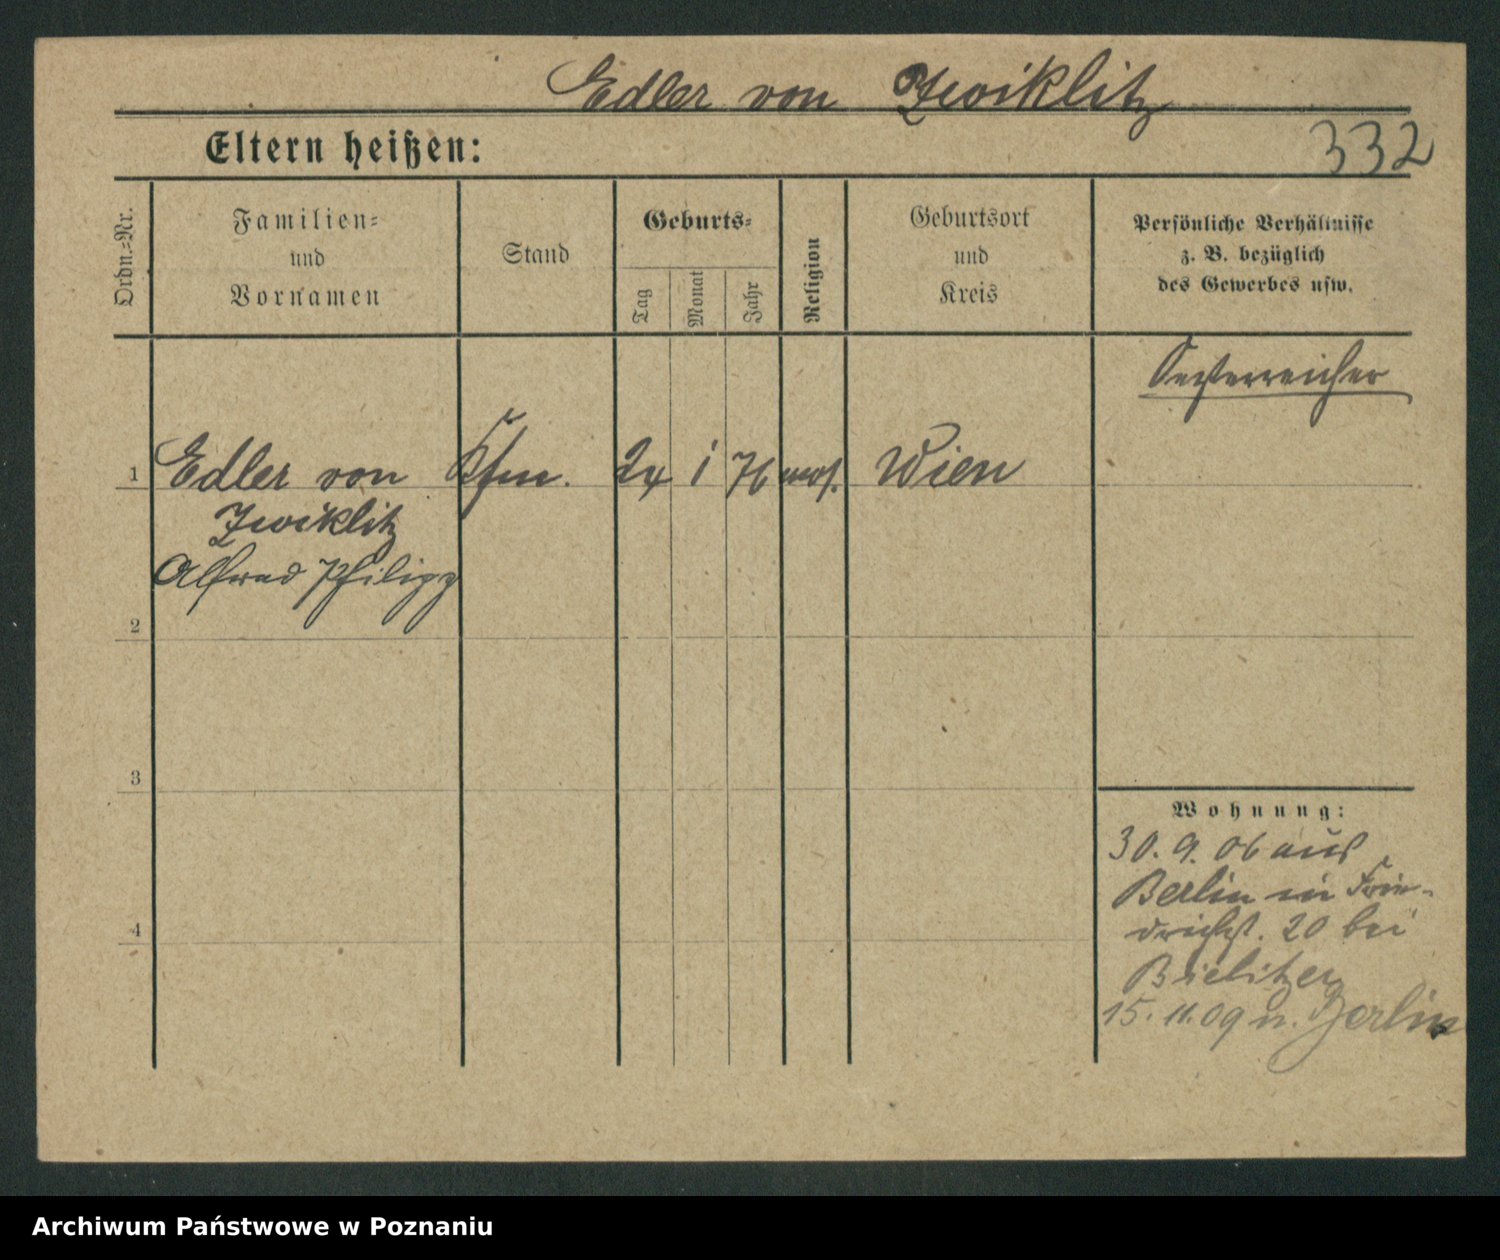 Edler von Zwiklitz
Eltern heißen:
332
Ordn.=Nr.
Familien=
und
Vornamen
Stand
Geburts=
Tag
Monat
Jahr
Religion
Geburtsort
und
Kreis
Persönliche Verhältnisse
z. B. bezüglich
des Gewerbes usw.
Oesterreicher
1 Edler von Kfm. 24 1 76 mos. Wien
Zwiklitz
Alfred Philipp
2
3
Wohnung:
30. 9. 06 aus
Berlin in Frie-
drichst. 20 bei
4
Bielitzer
15. 11. 09 n. Berlin
Archiwum Państwowe w Poznaniu